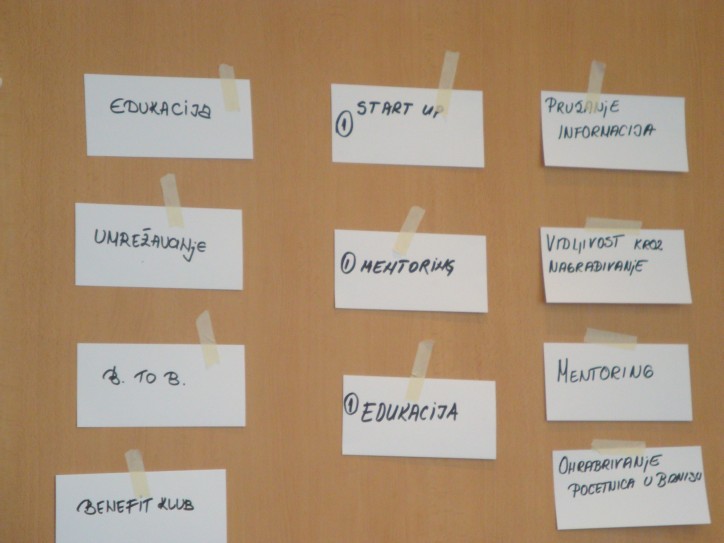 EDUKACIJA
UMREŽAVANJE
B. TO B.
BENEFIT KLUB
① START UP
① MENTORING
① EDUKACIJA
PRUŽANJE
INFORMACIJA
VIDLJIVOST KROZ
NAGRAĐIVANJE
MENTORING
OHRABRIVANJE
POČETNICA U BIZNISU